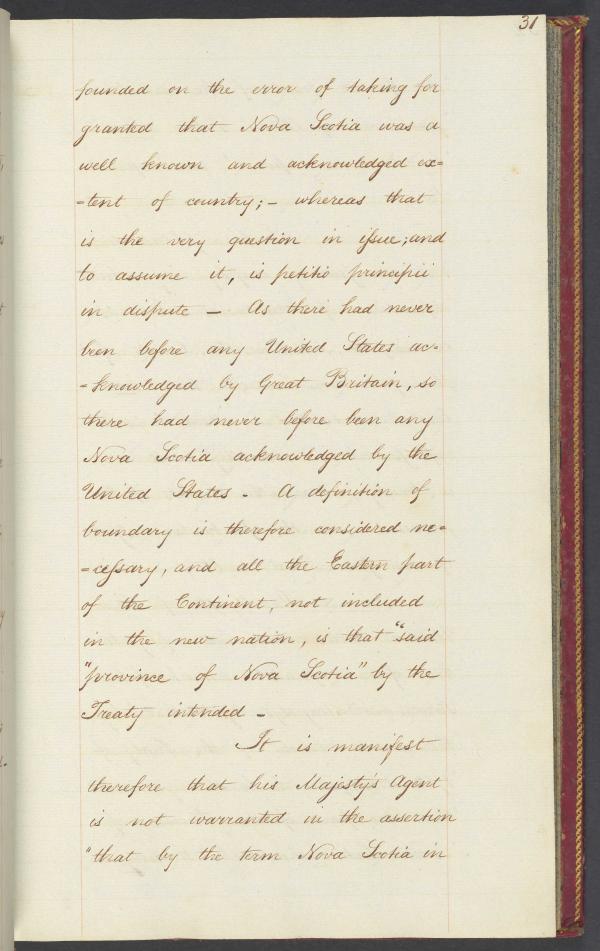 31
founded on the error of taking for
granted that Nova Scotia was a
well known and acknowledged ex=
=tent of country; – whereas that
is the very question in issue; and
to assume it, is petitio principii
in dispute – As there had never
been before any United States ac=
=knowledged by Great Britain, so
there had never before been any
Nova Scotia acknowledged by the
United States – A definition of
boundary is therefore considered ne=
=cessary, and all the Eastern part
of the Continent, not included
in the new nation, is that "said
"province of Nova Scotia" by the
Treaty intended –
It is manifest
therefore that his Majesty's Agent
is not warranted in the assertion
"that by the term Nova Scotia in